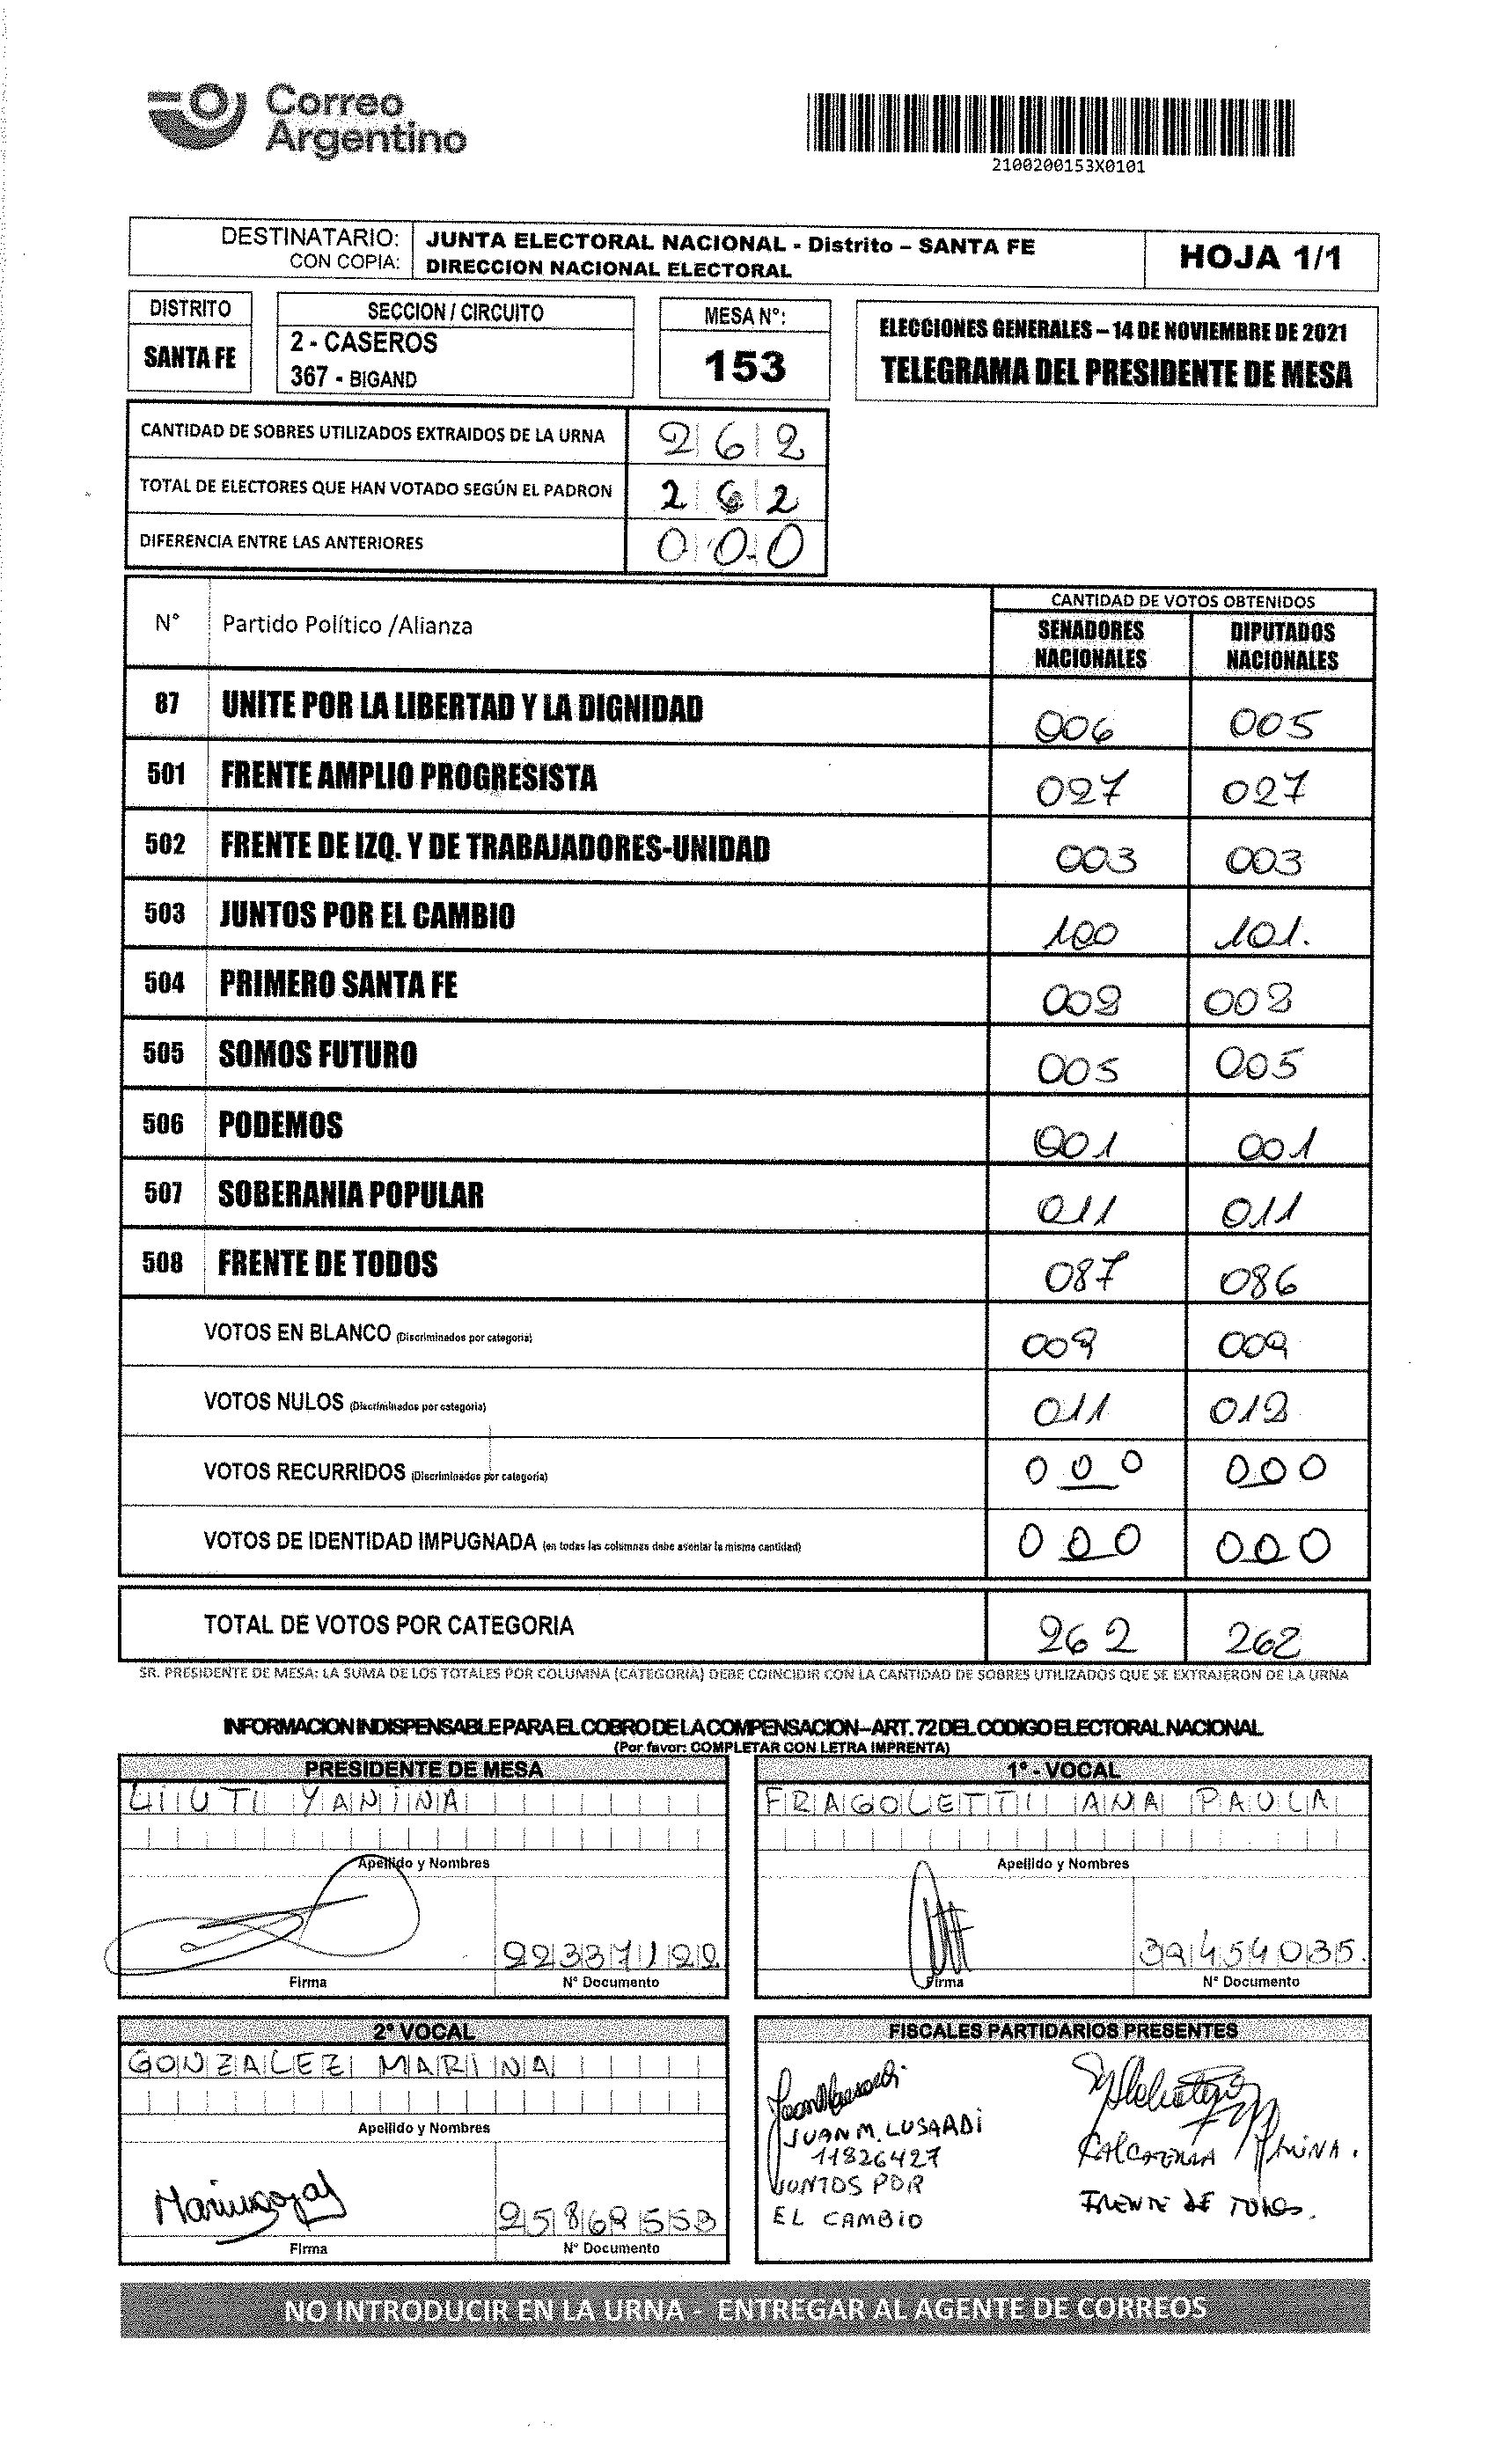 Correo
Argentino
2100200153X0101
DESTINATARIO: JUNTA ELECTORAL NACIONAL - Distrito – SANTA FE
CON COPIA: DIRECCION NACIONAL ELECTORAL
HOJA 1/1
DISTRITO
SANTA FE
SECCION / CIRCUITO
2 - CASEROS
367 - BIGAND
MESA N°:
153
ELECCIONES GENERALES – 14 DE NOVIEMBRE DE 2021
TELEGRAMA DEL PRESIDENTE DE MESA
CANTIDAD DE SOBRES UTILIZADOS EXTRAIDOS DE LA URNA 262
TOTAL DE ELECTORES QUE HAN VOTADO SEGÚN EL PADRON 262
DIFERENCIA ENTRE LAS ANTERIORES 000
N° Partido Político /Alianza
CANTIDAD DE VOTOS OBTENIDOS
SENADORES NACIONALES
DIPUTADOS NACIONALES
87 UNITE POR LA LIBERTAD Y LA DIGNIDAD 006 005
501 FRENTE AMPLIO PROGRESISTA 027 027
502 FRENTE DE IZQ. Y DE TRABAJADORES-UNIDAD 003 003
503 JUNTOS POR EL CAMBIO 100 101.
504 PRIMERO SANTA FE 002 002
505 SOMOS FUTURO 005 005
506 PODEMOS 001 001
507 SOBERANIA POPULAR 011 011
508 FRENTE DE TODOS 087 086
VOTOS EN BLANCO (Discriminados por categoria) 009 009
VOTOS NULOS (Discriminados por categoria) 011 012
VOTOS RECURRIDOS (Discriminados por categoria) 000 000
VOTOS DE IDENTIDAD IMPUGNADA (en todas las columnas debe asentar la misma cantidad) 000 000
TOTAL DE VOTOS POR CATEGORIA 262 262
SR. PRESIDENTE DE MESA: LA SUMA DE LOS TOTALES POR COLUMNA (CATEGORIA) DEBE COINCIDIR CON LA CANTIDAD DE SOBRES UTILIZADOS QUE SE EXTRAJERON DE LA URNA
INFORMACION INDISPENSABLE PARA EL COBRO DE LA COMPENSACION – ART. 72 DEL CODIGO ELECTORAL NACIONAL
(Por favor: COMPLETAR CON LETRA IMPRENTA)
PRESIDENTE DE MESA
LIUTI YANINA
Apellido y Nombres
22337122
Firma N° Documento
1° - VOCAL
FRAGOLETTI ANA PAULA
Apellido y Nombres
39454035.
Firma N° Documento
2° VOCAL
GONZALEZ MARINA
Apellido y Nombres
25868553
Firma N° Documento
FISCALES PARTIDARIOS PRESENTES
JUAN M. LUSARDI
11826427
JUNTOS POR
EL CAMBIO
FRENTE DE TODOS.
NO INTRODUCIR EN LA URNA - ENTREGAR AL AGENTE DE CORREOS